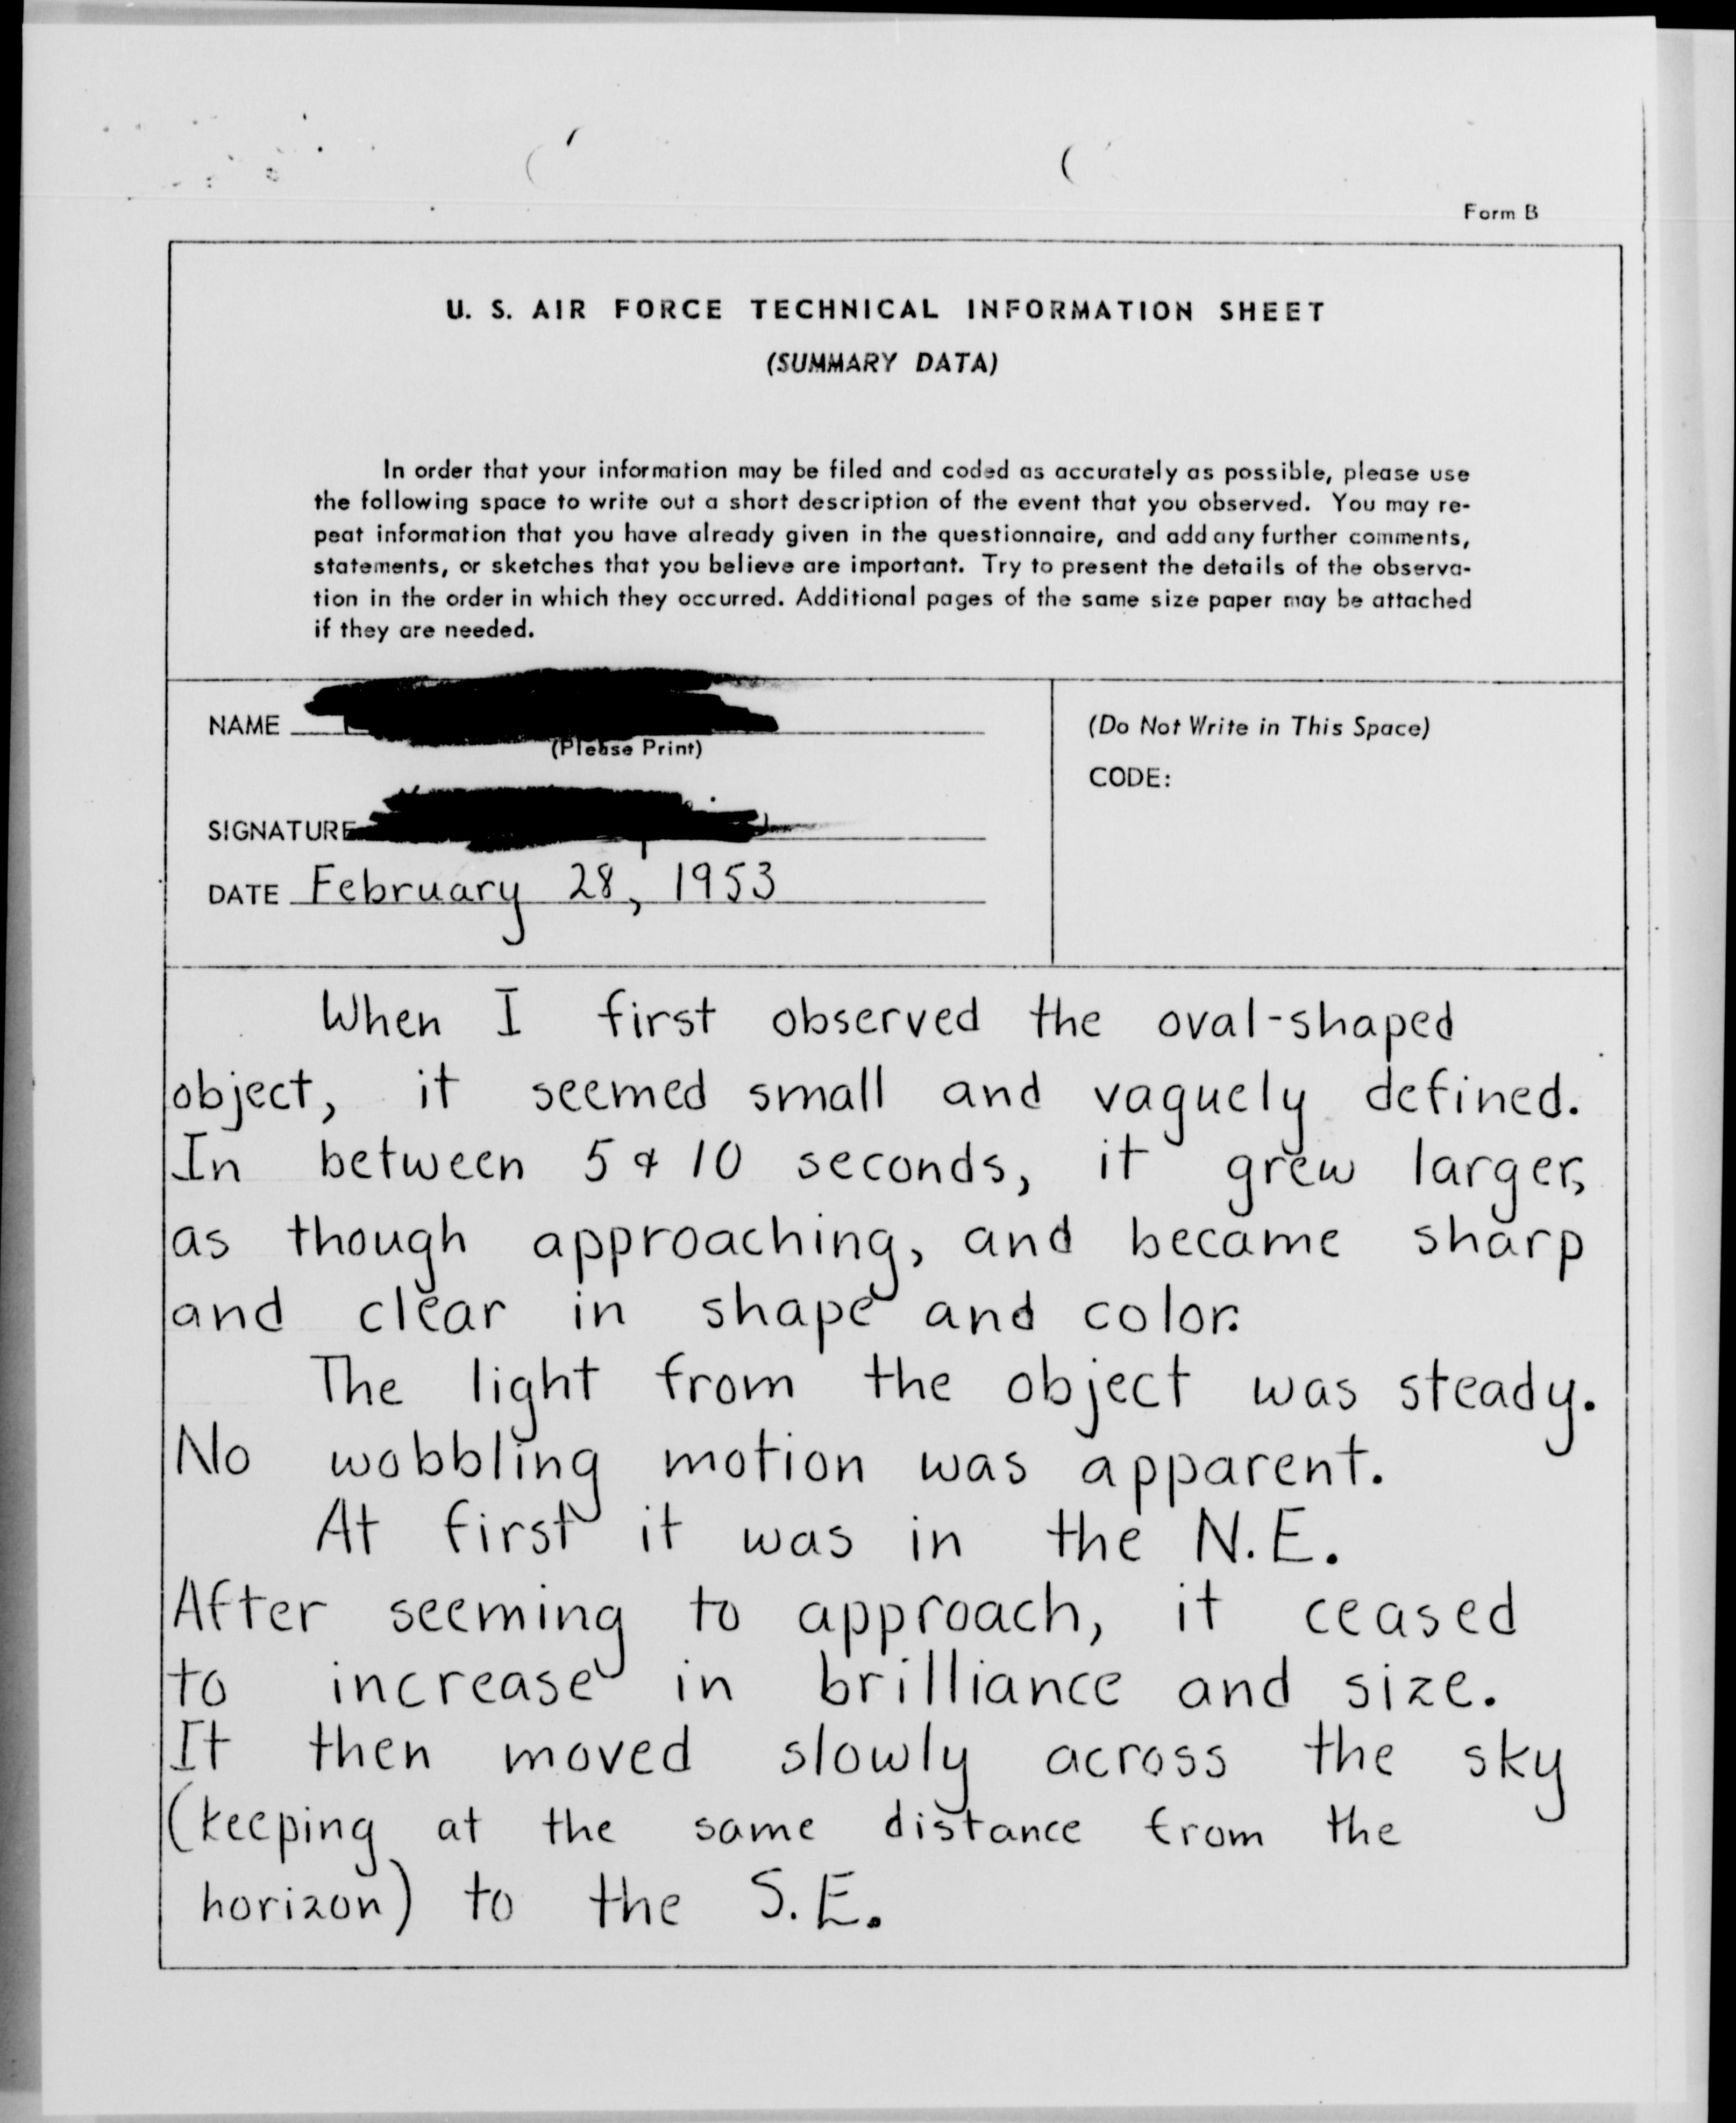 Form B
U. S. AIR FORCE TECHNICAL INFORMATION SHEET
(SUMMARY DATA)
In order that your information may be filed and coded as accurately as possible, please use
the following space to write out a short description of the event that you observed. You may re-
peat information that you have already given in the questionnaire, and add any further comments,
statements, or sketches that you believe are important. Try to present the details of the observa-
tion in the order in which they occurred. Additional pages of the same size paper may be attached
if they are needed.
NAME
(Please Print)
SIGNATURE
DATE February 28, 1953
(Do Not Write in This Space)
CODE:
When I first observed the oval-shaped
object, it seemed small and vaguely defined.
In between 5 & 10 seconds, it grew larger,
as though approaching, and became sharp
and clear in shape and color.
The light from the object was steady.
No wobbling motion was apparent.
At first it was in the N.E.
After seeming to approach, it ceased
to increase in brilliance and size.
It then moved slowly across the sky
(keeping at the same distance from the
horizon) to the S.E.